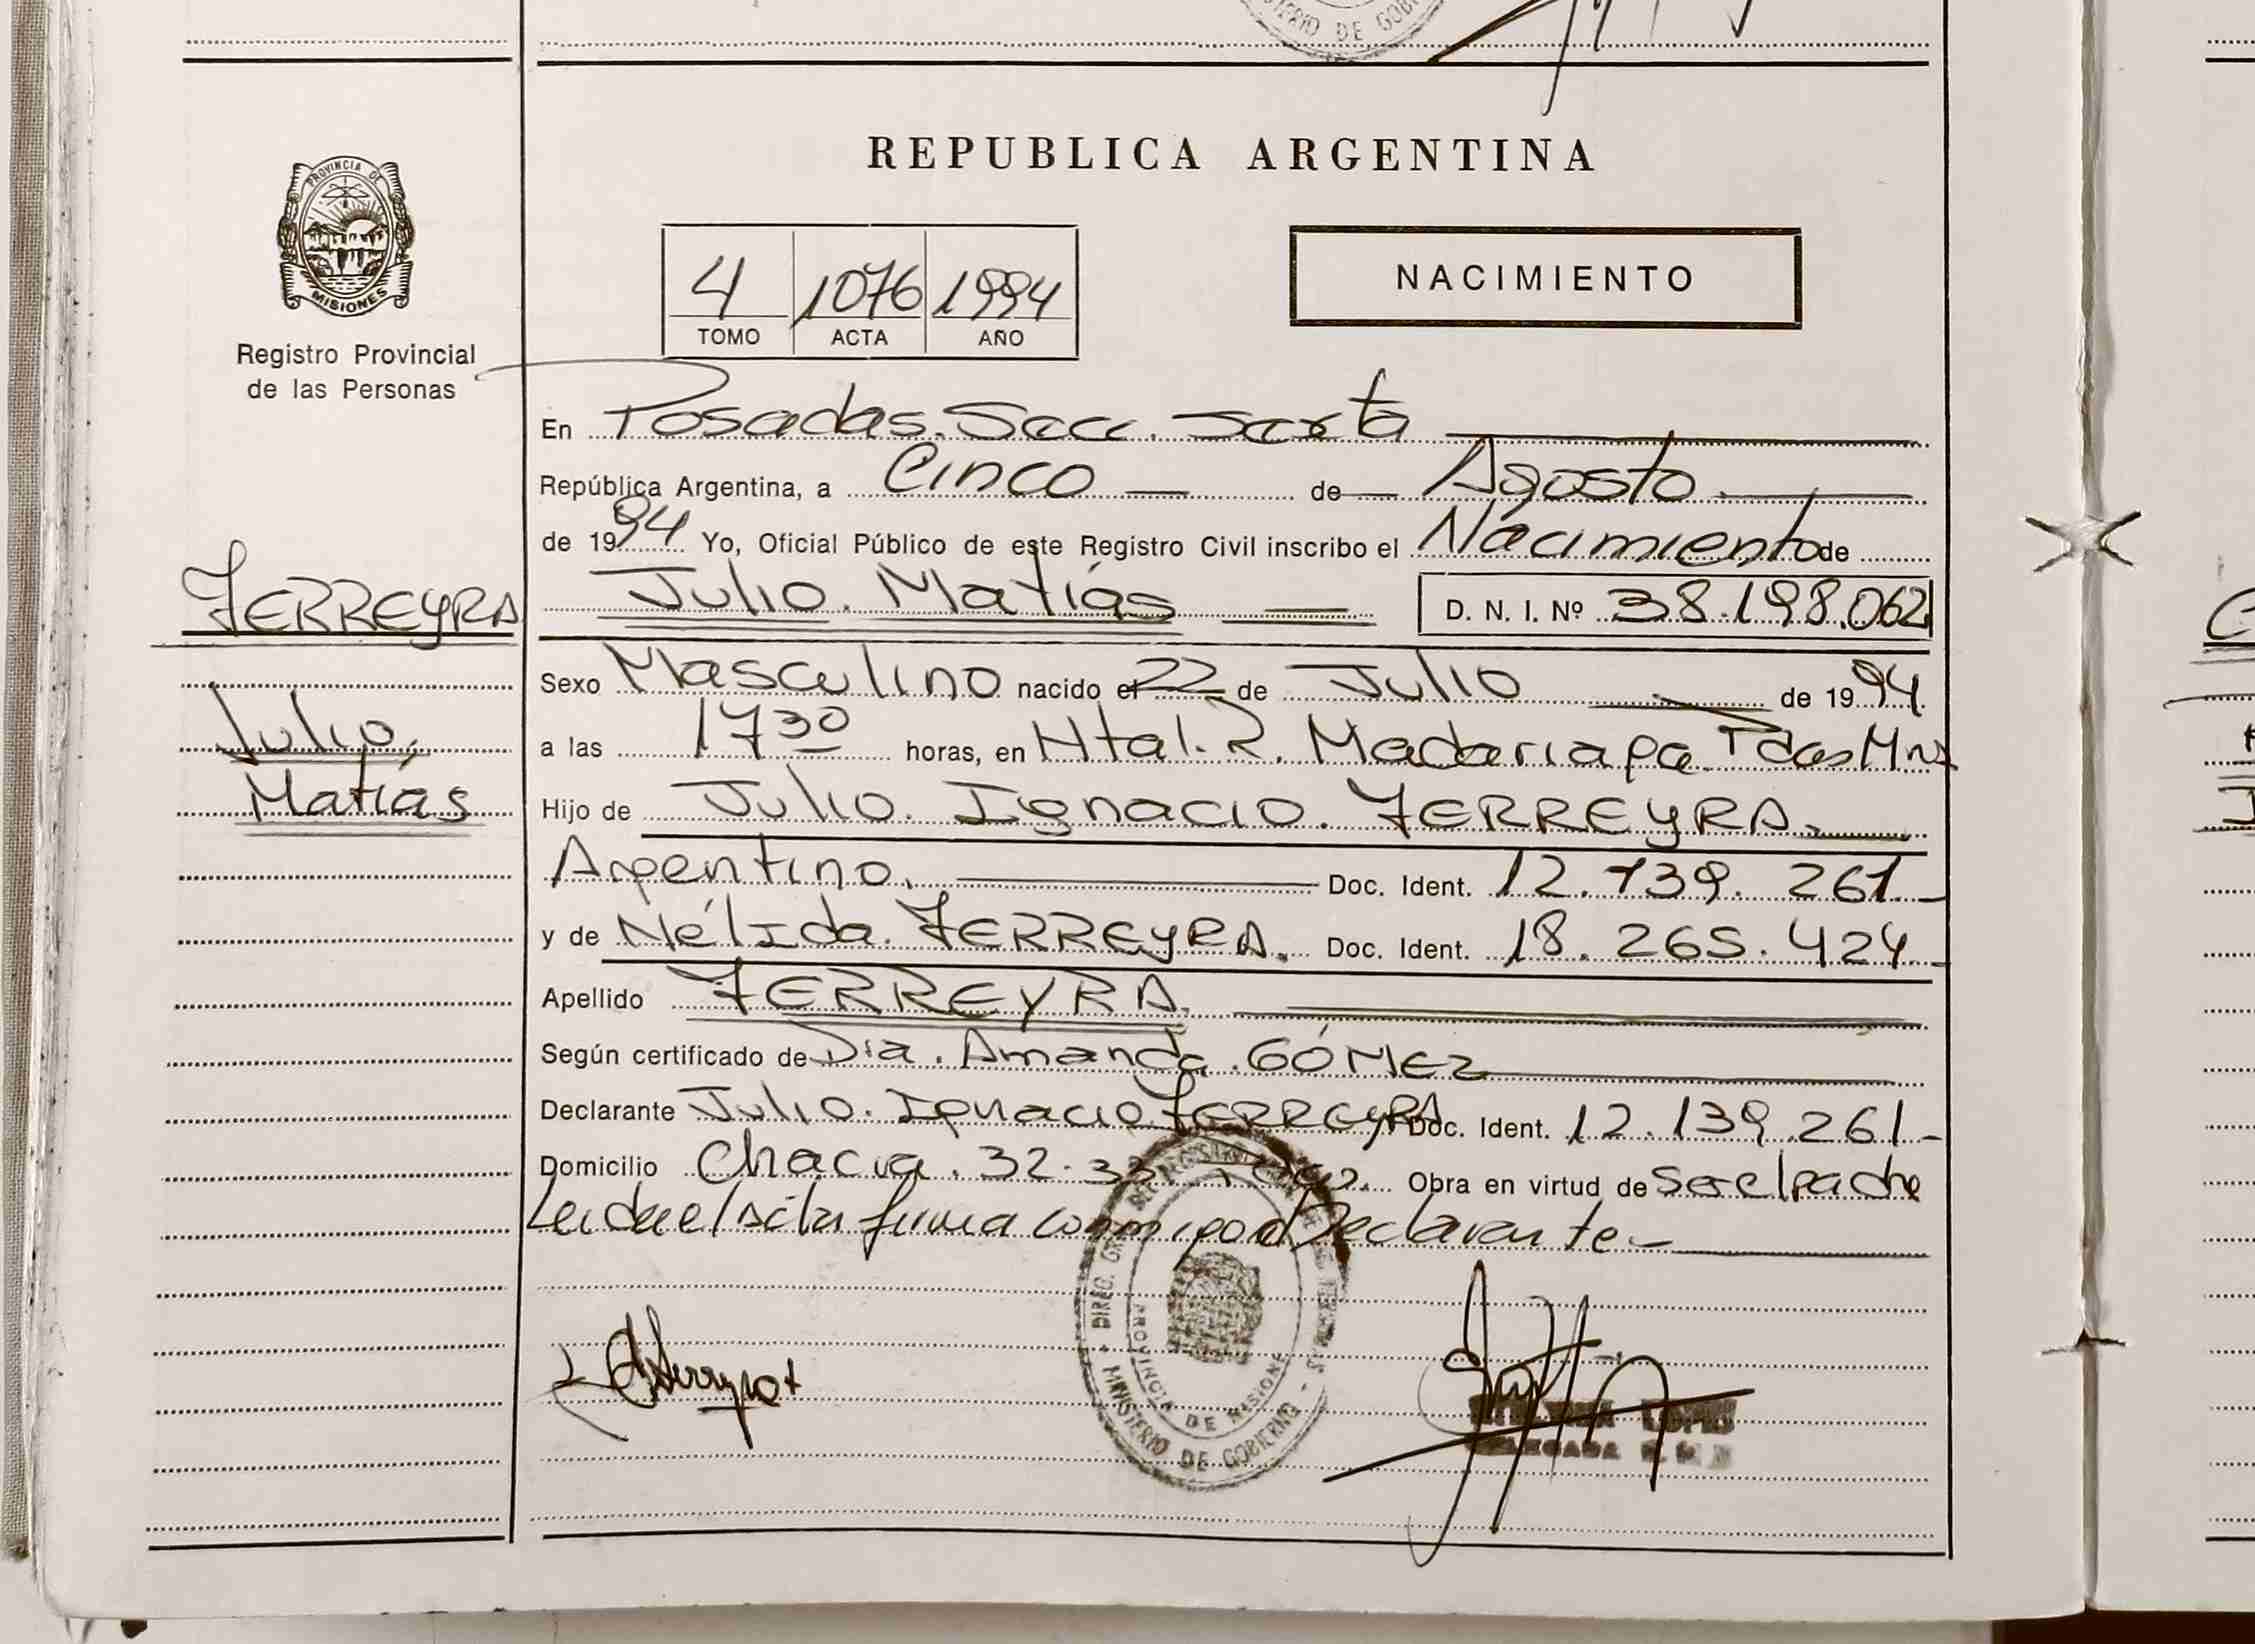 MINISTERIO DE GOBIERNO
REPUBLICA ARGENTINA
PROVINCIA DE
MISIONES
Registro Provincial
de las Personas
4 1076 1994
TOMO ACTA AÑO
NACIMIENTO
En Posadas. Secc. Sexta
República Argentina, a Cinco de Agosto
de 1994 Yo, Oficial Público de este Registro Civil inscribo el Nacimiento de
FERREYRA
Julio. Matías D. N. I. Nº 38.198.062
Sexo Masculino nacido el 22 de Julio de 1994
Julio,
Matías
a las 17 30 horas, en Htal. R. Madariaga Pdas Mns
Hijo de Julio. Ignacio. FERREYRA.
Argentino. Doc. Ident. 12.139.261.-
y de Nélida. FERREYRA. Doc. Ident. 18.265.424.-
Apellido FERREYRA.
Según certificado de Dra. Amanda. GÓMEZ
Declarante Julio. Ignacio FERREYRA Doc. Ident. 12.139.261-
Domicilio Chacra. 32-33 Pdas. Obra en virtud de ser el padre
Leida el acta firma conmigo el Declarante.-
DIREC. GRAL. DEL REGISTRO
PROVINCIA DE MISIONES
MINISTERIO DE GOBIERNO